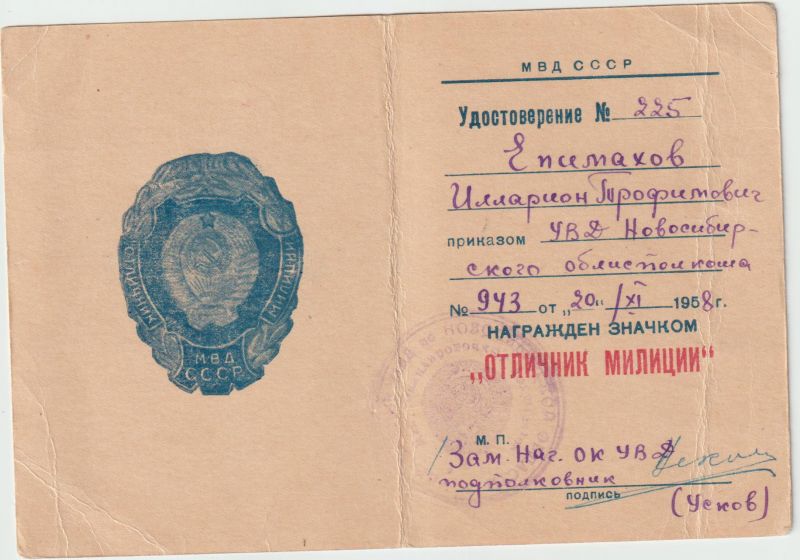 ОТЛИЧНИК
МИЛИЦИИ
МВД
СССР
МВД СССР
Удостоверение № 225
Епимахов
Илларион Трофимович
приказом УВД Новосибир-
ского облисполкома
№ 943 от „20“ XI 1958 г.
НАГРАЖДЕН ЗНАЧКОМ
„ОТЛИЧНИК МИЛИЦИИ“
М. П.
Зам. Нач. ОК УВД
подполковник
подпись
(Усков)